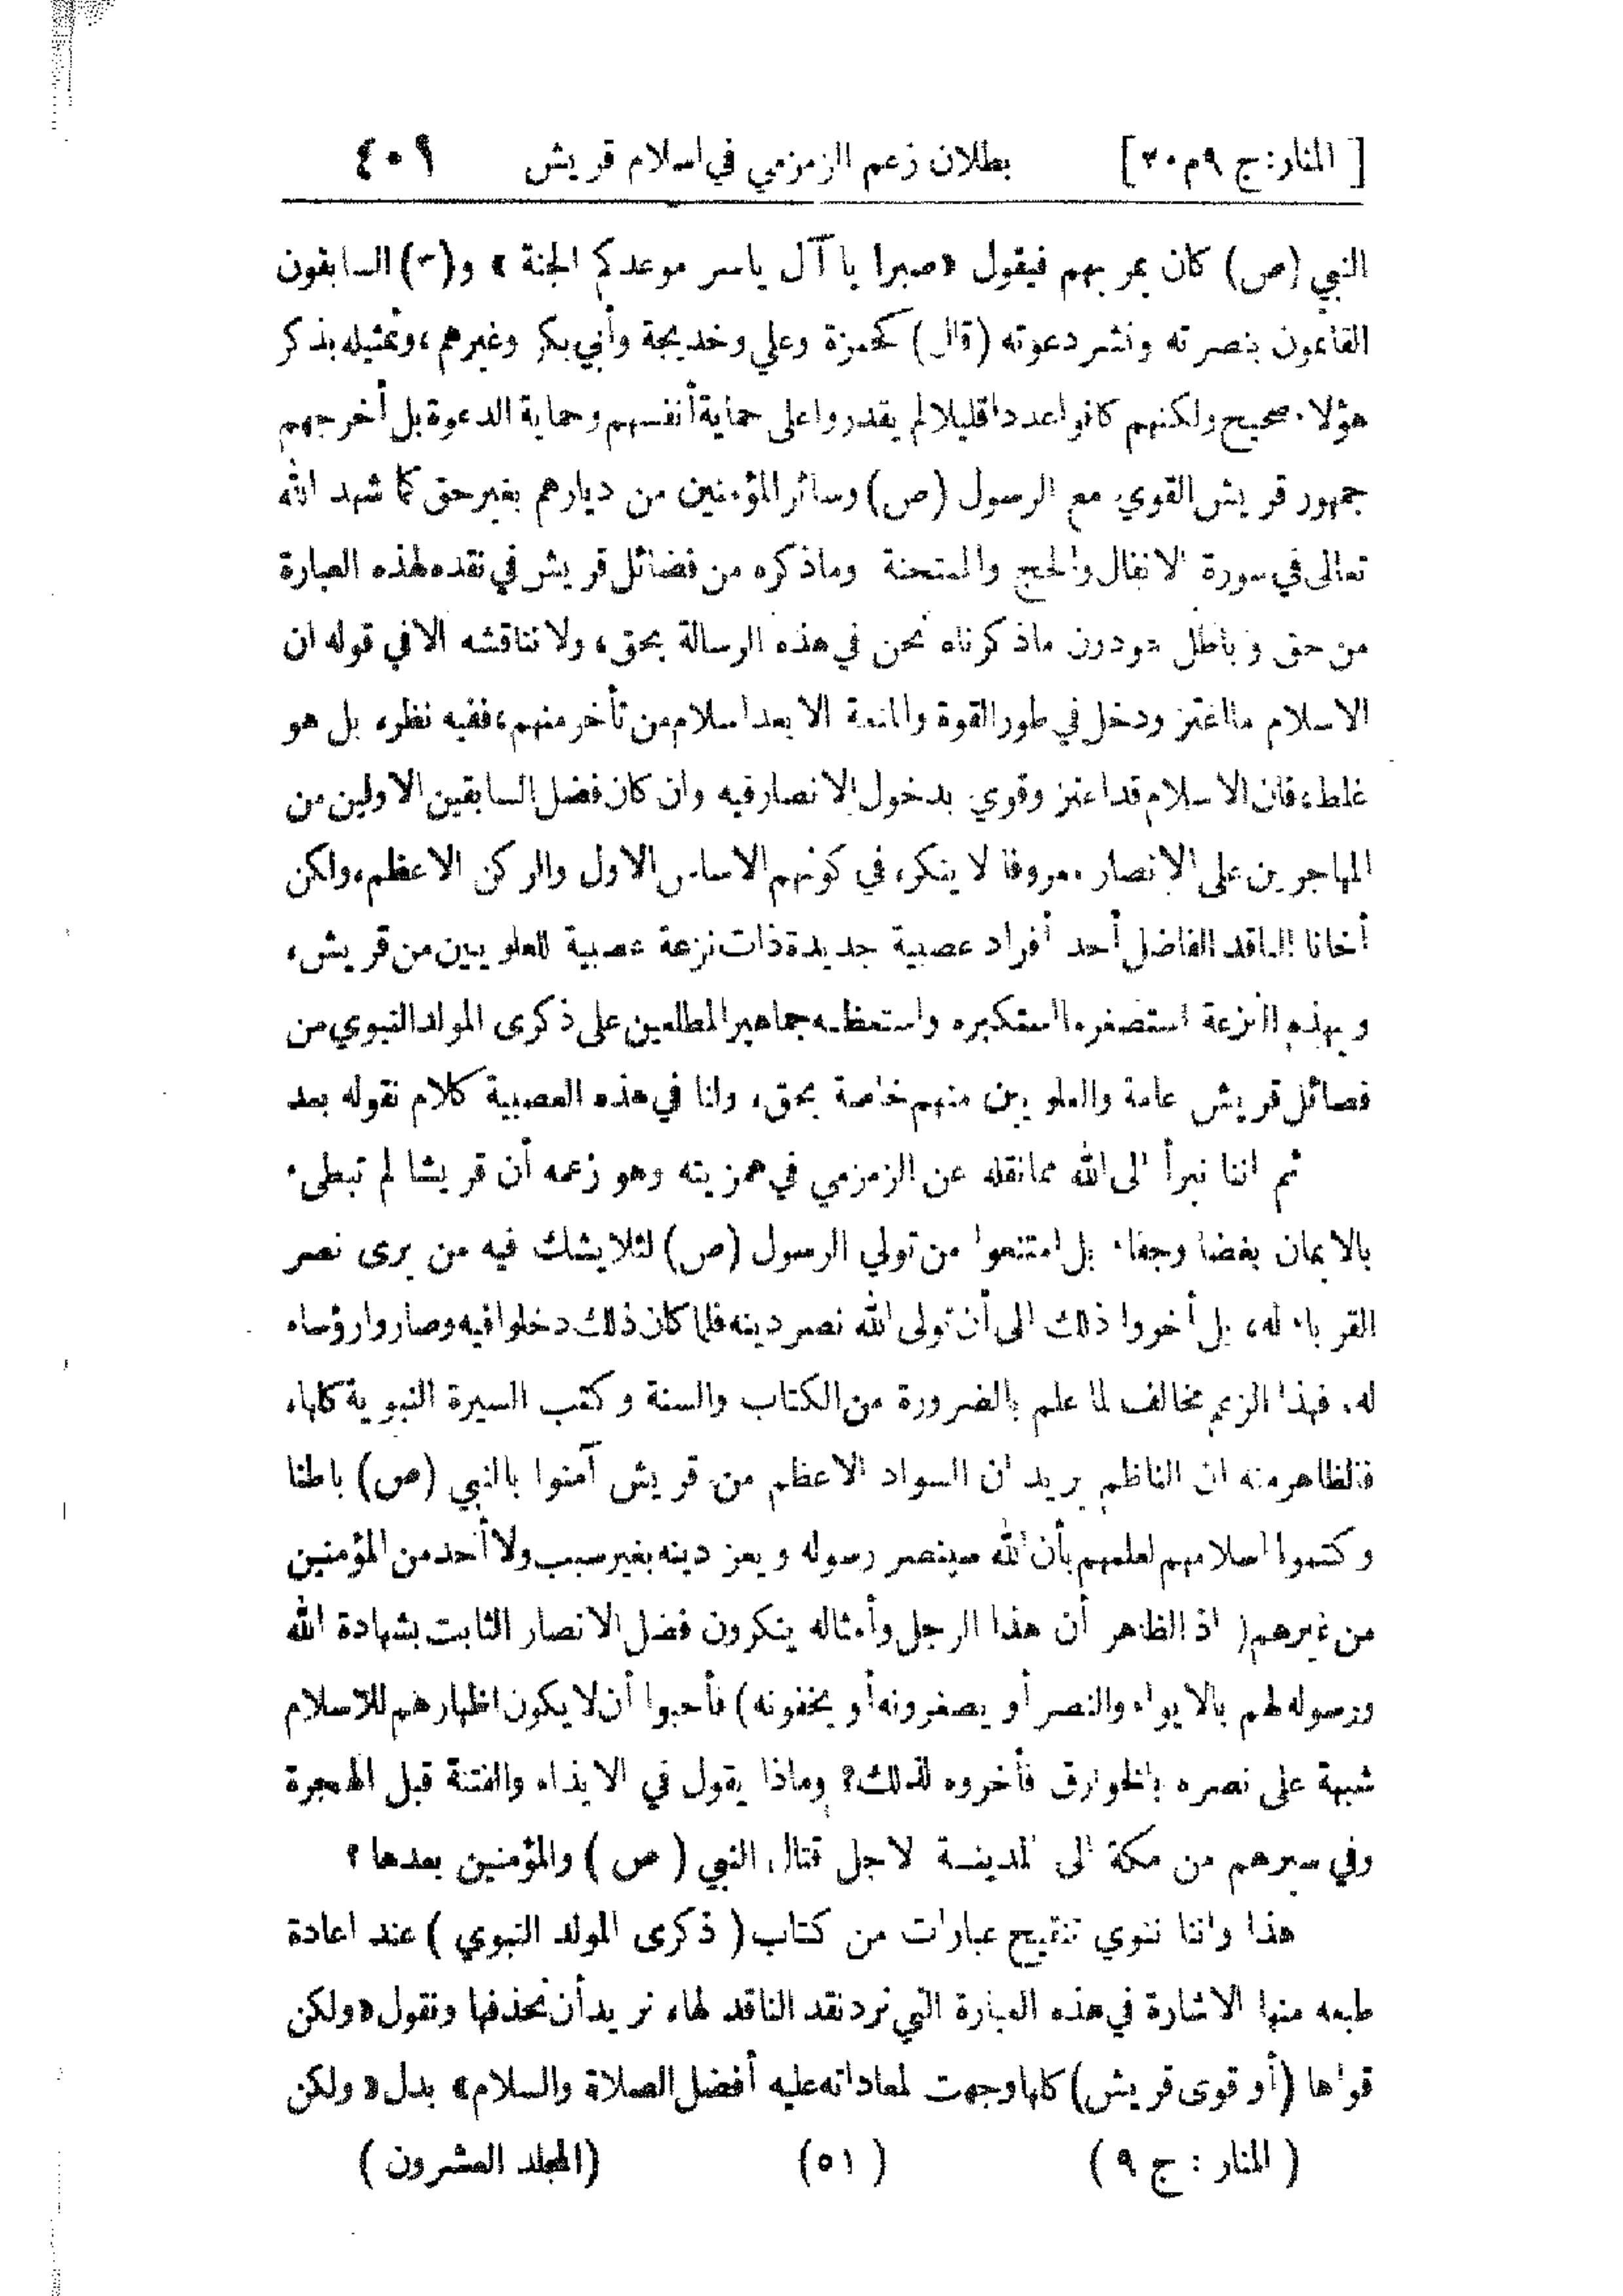 [المنار: ج ٩ م ٢٠] بطلان زعم الزمزمي في اسلام قريش ٤٠١
النبي (ص) كان يمر بهم فيقول «صبرا يا آل ياسر موعدكم الجنة» و(٣) السابقون
القائمون بنصرته ونشر دعوته (قال) كحمزة وعلي وخديجة وأبي بكر وغيرهم، وتمثيله بذكر
هؤلاء صحيح ولكنهم كانوا عددا قليلا لم يقدروا على حماية أنفسهم وحماية الدعوة بل أخرجهم
جمهور قريش القوي مع الرسول (ص) وسائر المؤمنين من ديارهم بغير حق كما شهد الله
تعالى في سورة الانفال والحج والممتحنة وماذكره من فضائل قريش في نقده لهذه العبارة
من حق وباطل هو دون ماذكرناه نحن في هذه الرسالة بحق، ولا نناقشه الا في قوله ان
الاسلام مااعتز ودخل في طور القوة والمنعة الا بعد اسلام من تأخر منهم، ففيه نظر، بل هو
غلط، فان الاسلام قد اعتز وقوي بدخول الانصار فيه وان كان فضل السابقين الاولين من
المهاجرين على الانصار معروفا لا ينكر، في كونهم الاساس الاول والركن الاعظم، ولكن
أخانا الناقد الفاضل أحد أفراد عصبية جديدة ذات نزعة عصبية للعلويين من قريش،
وبهذه النزعة استصغر مااستكبره واستعظمه جماهير المطلعين على ذكرى المولد النبوي من
فصائل قريش عامة والعلويين منهم خاصة بحق، ولنا في هذه العصبية كلام نقوله بعد
ثم اننا نبرأ الى الله ممانقله عن الزمزمي في همزيته وهو زعمه أن قريشا لم تبطىء
بالايمان بغضا وجفاء بل امتنعوا من تولي الرسول (ص) لئلا يشك فيه من يرى نصر
القرباء له، بل أخروا ذلك الى أن تولى الله نصر دينه فلما كان ذلك دخلوا فيه وصاروا رؤساء
له. فهذا الزعم مخالف لما علم بالضرورة من الكتاب والسنة وكتب السيرة النبوية كلها،
فالظاهر منه ان الناظم يريد ان السواد الاعظم من قريش آمنوا بالنبي (ص) باطنا
وكتموا اسلامهم لعلمهم بأن الله سينصر رسوله ويعز دينه بغير سبب ولا أحد من المؤمنين
من غيرهم( اذ الظاهر أن هذا الرجل وأمثاله ينكرون فضل الانصار الثابت بشهادة الله
ورسوله لهم بالايواء والنصر أو يصغرونه أو يخفونه) فأحبوا أن لا يكون اظهارهم للاسلام
شبهة على نصره بالخوارق فأخروه لذلك؟ وماذا يقول في الايذاء والفتنة قبل الهجرة
وفي سيرهم من مكة الى المدينة لاجل قتال النبي (ص) والمؤمنين بعدها؟
هذا واننا ننوي تنقيح عبارات من كتاب (ذكرى المولد النبوي) عند اعادة
طبعه منها الاشارة في هذه العبارة التي نرد نقد الناقد لها، نريد أن نحذفها ونقول «ولكن
قواها (أو قوى قريش) كلها وجهت لمعاداته عليه أفضل الصلاة والسلام» بدل «ولكن
(المنار : ج ٩) (٥١) (المجلد العشرون)